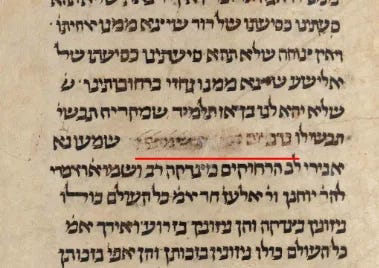 סיעתנו כסיעתו של דוד שיצא ממנו אחיתו
ואין יוצאת שלא תהא סיעתנו כסיעתו של
אלישע שיצא ממנו גחזי ברחובותינו
שלא יהא לנו בן או תלמיד שמקדיח תבשי
תבשילו ברבים שמעו נא
אבירי לב הרחוקים מצדקה רב ושמו' ואמרי
לה ר' יוחנן ור' אלעז' חד אמ' כל העולם כולו
ניזונין בצדקה והן ניזונין בזרוע ואידך אמ'
כל העולם כולו ניזונין בזכותן והן אפי' בזכותן